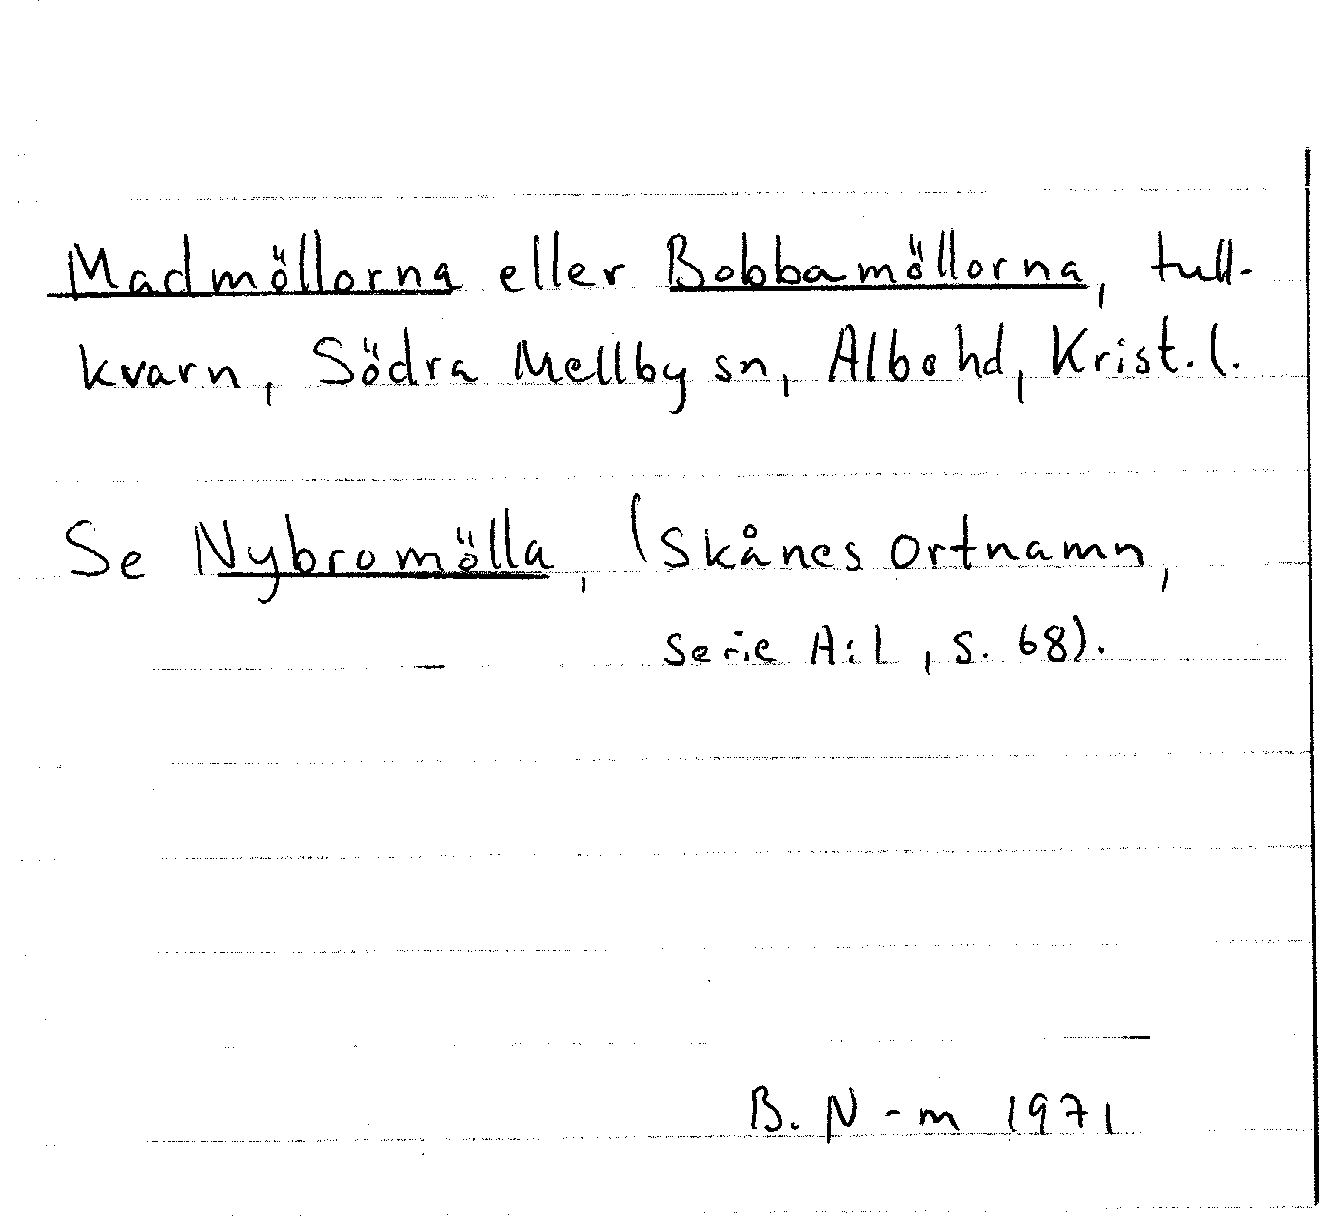 Madmöllorna eller Bobbamöllorna, tull-
kvarn, Södra Mellby sn, Albo hd, Krist. l.
Se Nybromölla, (Skånes Ortnamn,
serie A:1, s. 68).
B. N-m 1971